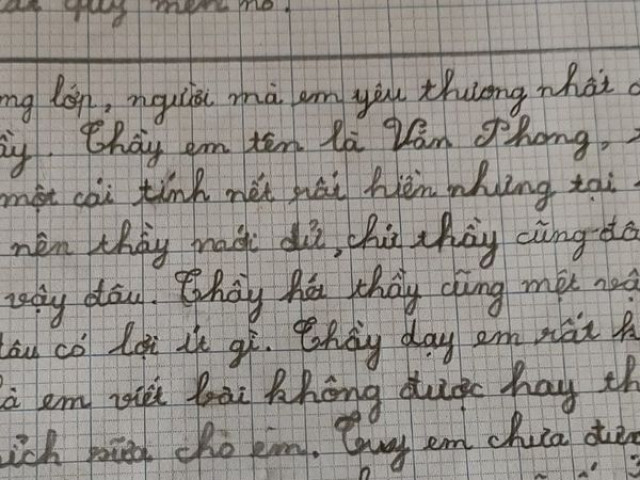 quý mến nó.
ng lớp, người mà em yêu thương nhất
ầy. Thầy em tên là Văn Phong,
một cái tính nết rất hiền nhưng tại
nên thầy mới dữ, chứ thầy cũng đâ
vậy đâu. Thầy hát thầy cũng mệt
đâu có lợi ít gì. Thầy dạy em rất h
là em viết bài không được hay th
ích nữa cho em. Tuy em chưa đượ